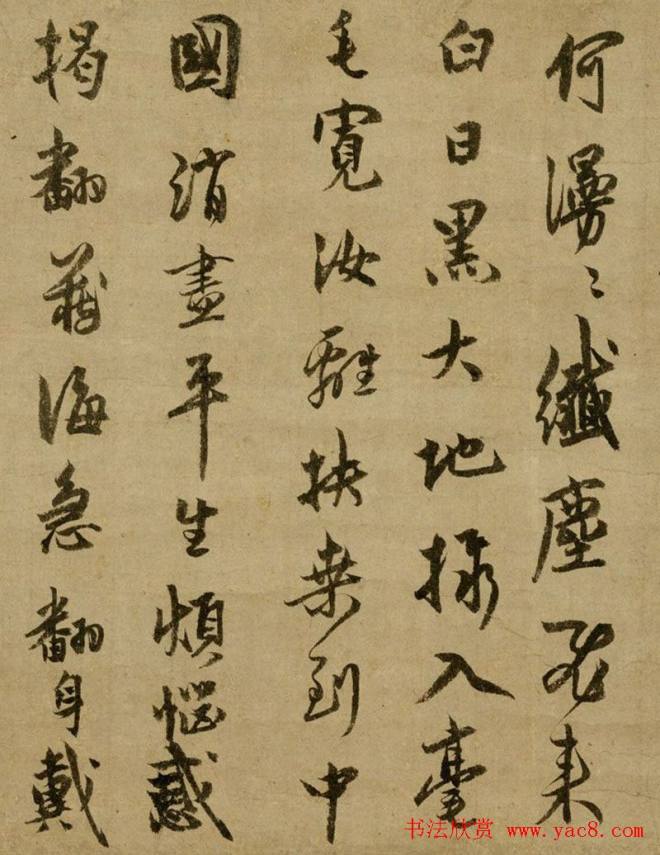 何漫〻纖塵飛来
白日黑大地入毫
毛寛汝離扶桒到中
國消盡平生煩惱惑
揭翻藏海急翻身戴
书法欣赏 www.yac8.com